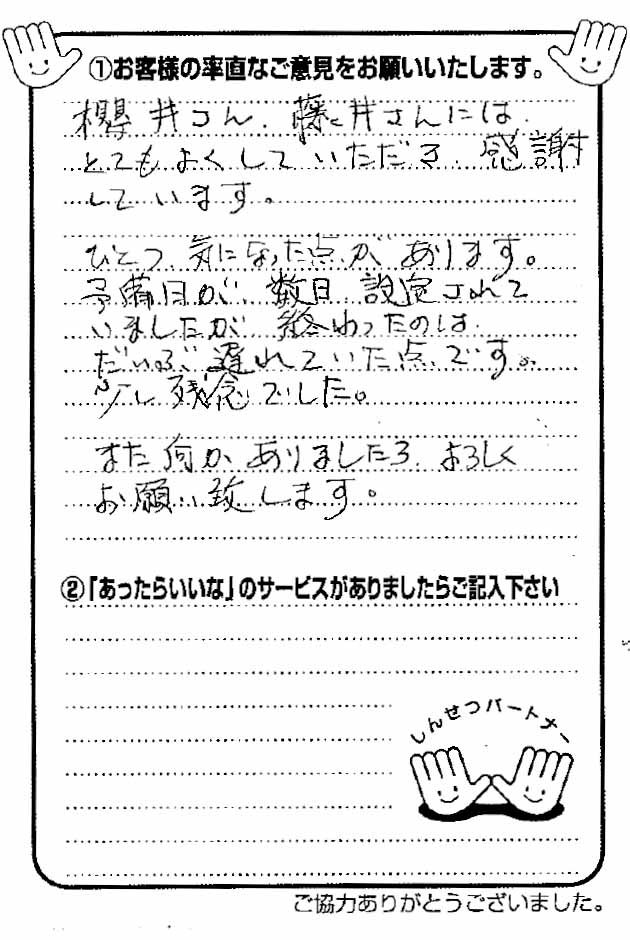 ①お客様の率直なご意見をお願いいたします。
櫻井さん、藤井さんには、
とてもよくしていただき、感謝
しています。
ひとつ、気になった点があります。
予備日が、数日、設定されて
いましたが、終わったのは、
だいぶ遅れていた点です。
少し残念でした。
また何かありましたら、よろしく
お願い致します。
②「あったらいいな」のサービスがありましたらご記入下さい
しんせつパートナー
ご協力ありがとうございました。